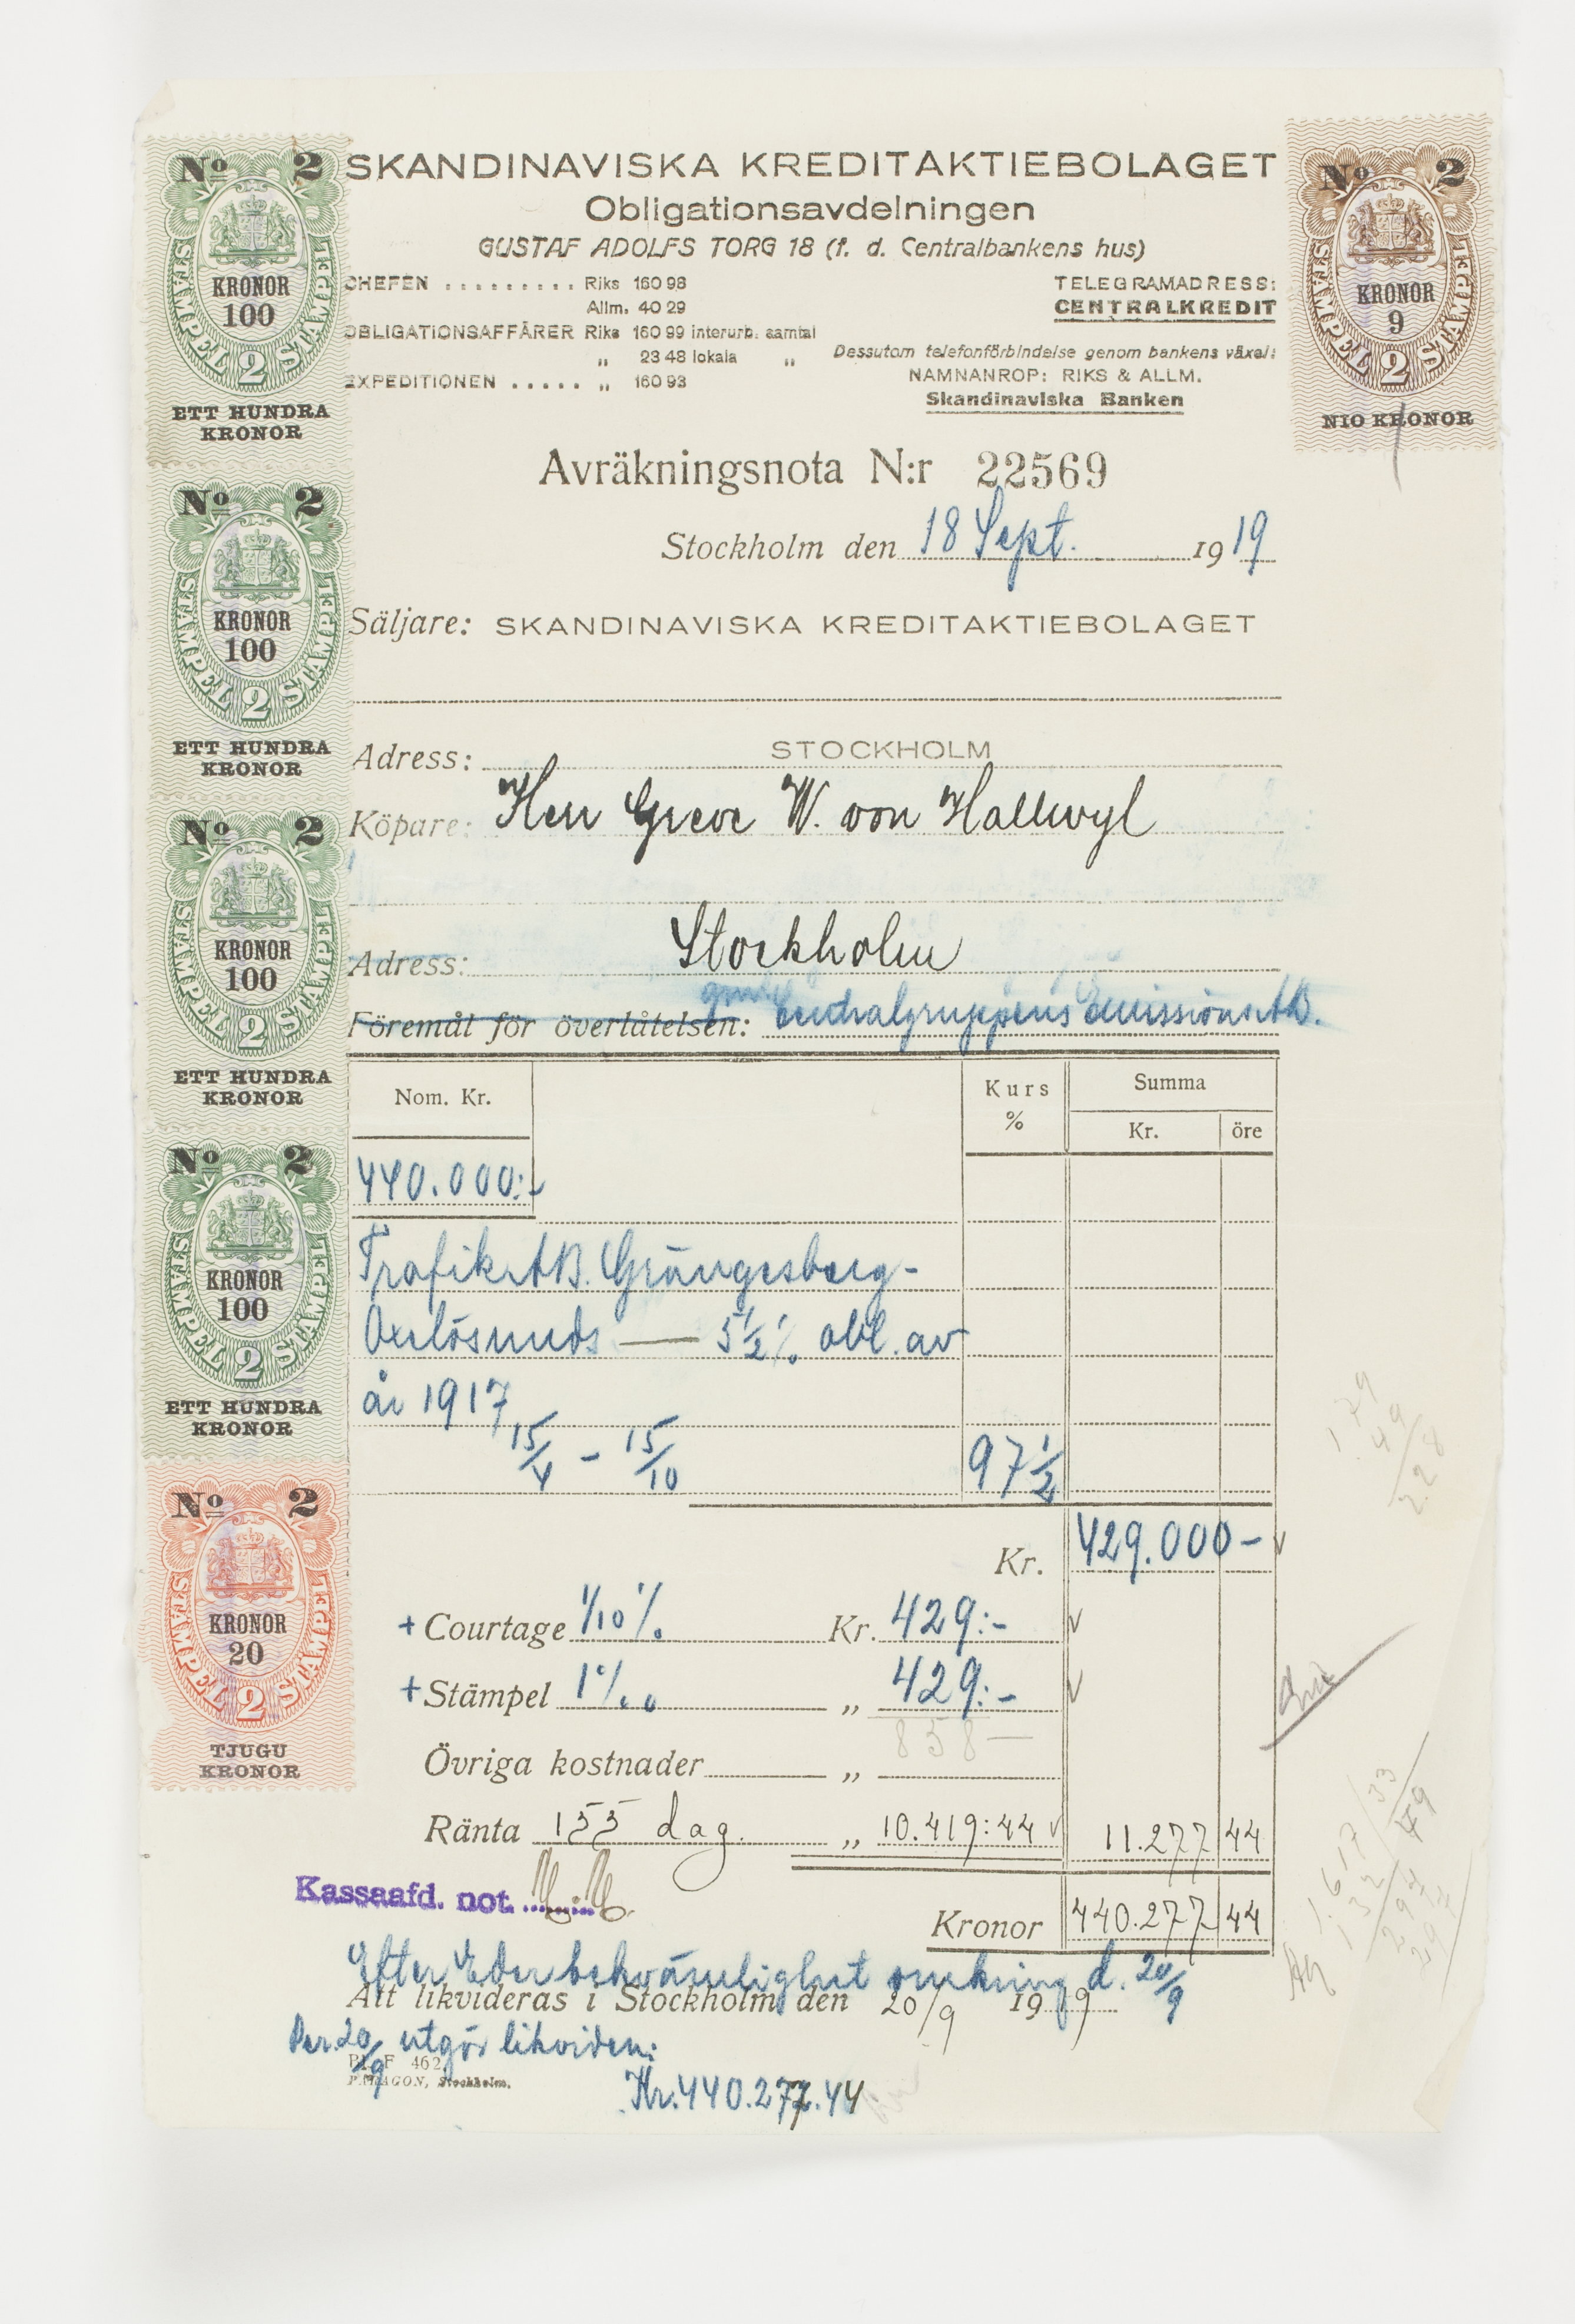 SKANDINAVISKA KREDITAKTIEBOLAGET
Obligationsavdelningen
GUSTAF ADOLFS TORG 18 (f. d. Centralbankens hus)
CHEFEN ......... Riks 160 98
Allm. 40 29
OBLIGATIONSAFFÄRER Riks 160 99 interurb. samtal
„ 23 48 lokala „
EXPEDITIONEN ..... „ 160 93
TELEGRAMADRESS:
CENTRALKREDIT
Dessutom telefonförbindelse genom bankens växel:
NAMNANROP: RIKS & ALLM.
Skandinaviska Banken
No 2
STÄMPEL 2 STÄMPEL
KRONOR
100
ETT HUNDRA
KRONOR
No 2
STÄMPEL 2 STÄMPEL
KRONOR
100
ETT HUNDRA
KRONOR
No 2
STÄMPEL 2 STÄMPEL
KRONOR
100
ETT HUNDRA
KRONOR
No 2
STÄMPEL 2 STÄMPEL
KRONOR
100
ETT HUNDRA
KRONOR
No 2
STÄMPEL 2 STÄMPEL
KRONOR
20
TJUGU
KRONOR
No 2
STÄMPEL 2 STÄMPEL
KRONOR
9
NIO KRONOR
Avräkningsnota N:r 22569
Stockholm den 18 Sept. 1919
Säljare: SKANDINAVISKA KREDITAKTIEBOLAGET
Adress: STOCKHOLM
Köpare: Herr Greve W. von Hallwyl
Adress: Stockholm
Föremål för överlåtelsen: Centralgruppens Emissions AB.
Nom. Kr. Kurs % Summa
Kr. öre
440.000:-
Trafik AB. Grängesberg-
Oxelösunds — 5 1/2 % obl. av
år 1917
15/4 - 15/10 97 1/2
Kr. 429.000 -
+ Courtage 1/10 % Kr. 429:-
+ Stämpel 1 ‰ „ 429:-
858 -
Övriga kostnader „
Ränta 155 dag. „ 10.419:44 11.277 44
Kassaafd. not.
Kronor 440.277 44
Efter Eder bekvämlighet omkring d. 20/9
Att likvideras i Stockholm den 20/9 1919
Per 20/9 utgör likviden:
Bl. F 462
PARAGON, Stockholm.
Kr. 440.277.44